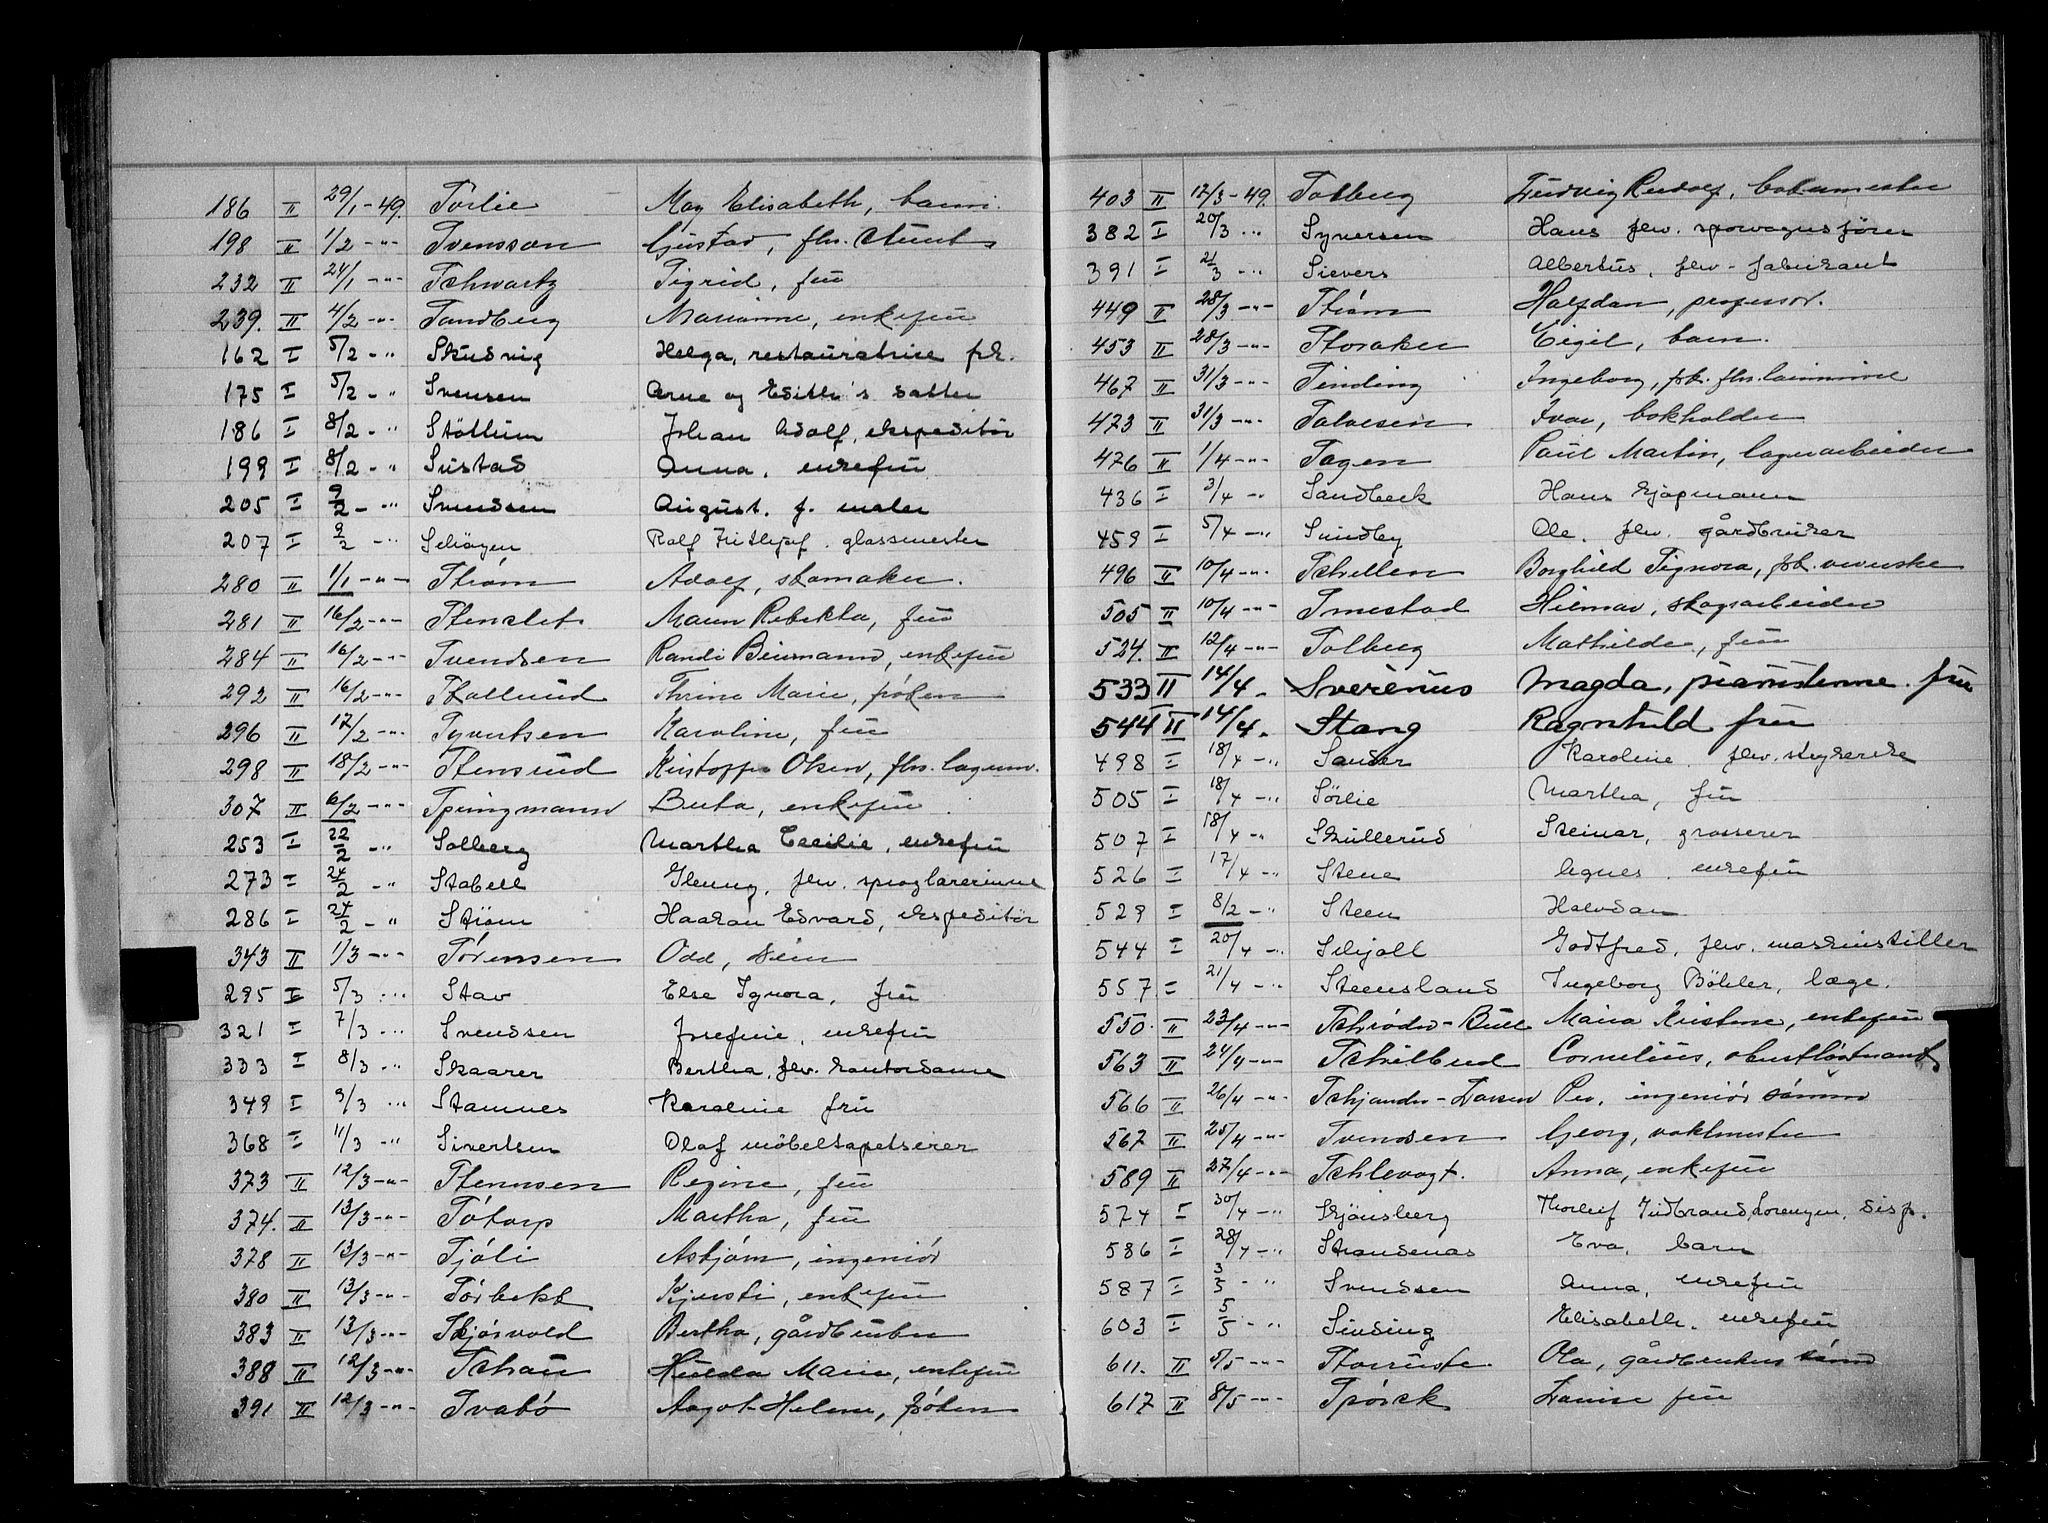 186 II 29/1-49. Sörlie May Elisabeth, barn.
198 II 1/2 -"- Svensson Gustav, fhv.
232 II 24/1 -"- Schwartz Sigrid, fru
239. II 4/2 -"- Sandberg Marianne, enkefru
162 I 5/2 - " Skudvig Helga, restauratrise frk.
175 I 5/2 - " Svensen Arne og Edith's datter
186 I 8/2 - " Stöttum Johan Adolf, ekspeditör
199 I 8/2 - " Sustad Anna, enkefru
205 I 9/2 - " Svendsen August. f. maler
207 I 9/2 - " Schöyen Rolf Frithjof. glassmester
280 II 1/1 -"- Ström Adolf, skomaker.
281 II 16/2 -"- Stenslet Maren Rebekka, fru
284 II 16/2 -"- Svendsen Randi Beumann, enkefru
292 II 16/2 -"- Skollund Thrine Marie, fröken
296 II 17/2 -"- Syvertsen Karoline, fru
298 II 18/2 -"- Stensrud Kristoffer Olsen, fhv. lagerm.
307 II 6/2 -"- Springmann Berta, enkefru
253 I 22/2 - " Solberg Martha Cecilie, enkefru
273 I 24/2 - " Stabell Glenny, fhv. sproglærerinne
286 I 24/2 - " Ström Haakan Edvard, ekspeditör
343 II 1/3 -"- Sörensen Odd, svein
295 I 5/3 - " Stav Else Ignora, fru
321 I 7/3 - " Svendsen Josefine, enkefru
333 I 8/3 - " Skaarer Bertha, fhv. kontordame
349 I 9/3 - " Stamnes Karoline fru
368 I 11/3 - " Sivertsen Olaf möbeltapetserer
373 II 12/3 -"- Stennsen Regine, fru
374. II 13/3 -"- Sötorp Martha, fru
378 II 13/3 -"- Sjöli Asbjörn, ingeniör
380 II 13/3 -"- Sörbekk Kjersti, enkefru
383 II 13/3 -"- Skjörvold Bertha, gårdbruker
388 II 12/3 -"- Schau Hulda Marie, enkefru
391 II 12/3 -"- Svabö Aagot-Helene, fröken
403 II 12/3-49. Solberg Ludvig Rudolf, bokamester
382 I 20/3 - " Syversen Hans fhv. sporvognsförer
391 I 21/3 - " Sievers Albertus, fhv. fabrikant
449 II 28/3 -"- Ström Halfdan, professor.
453 II 28/3 -"- Storaker Eigil, barn.
467 II 31/3 -"- Sinding Ingeborg, frk. fhv. lærerinne
473 II 31/3 -"- Salvesen Ivar, bokholder
476 II 1/4 -"- Sagen Paul Martin, lagerarbeider
436 I 3/4 - " Sandbeck Hans kjöpmann
459 I 5/4 - " Sundby Ole, fhv. gårdbruker
496 II 10/4 -"- Schillen Borghild Signora, frk.
505 II 10/4 -"- Smestad Hilmar, skogsarbeider
524. II 12/4 -"- Solberg Mathilde, fru
533 II 14/4. Sverenus Magda, pianistinne. fru
544 II 14/4. Stang Ragnhild fru
498 I 18/4 - " Sander Karoline, fhv. strykerske
505 I 18/4 - " Sörlie Martha, fru
507 I 18/4 - " Skullerud Steinar, grosserer
526 I 17/4 - " Stene Agnes. enkefru
529 I 8/2 - " Steen Halvdan
544 I 20/4 - " Schjoll Godtfred, fhv. maskinstiller
557. I 21/4 - " Steensland Ingeborg Böhler, læge.
550. II 23/4 -"- Schröder-Bull Maria Kristine, enkefru
563 II 24/4 -"- Schilbred Cornelius, oberstlöitnant
566 II 26/4 -"- Schjander-Larsen Per, ingeniör sönn
567 II 25/4 -"- Svendsen Georg, vaktmester
589 II 27/4 -"- Schlevogt. Anna, enkefru
574 I 30/4 - " Skjönsberg Thorleif Gudbrand, Lorenzen, disp.
586 I 28/4 - " Strandenas Eva, barn
587 I 3/5 - " Svendsen Anna, enkefru
603 I 5/5 - " Sinding Elisabeth. enkefru
611. II 5/5 -"- Storruste. Ola, gårdbrukers sönn
617 II 8/5 -"- Spörck Louise fru